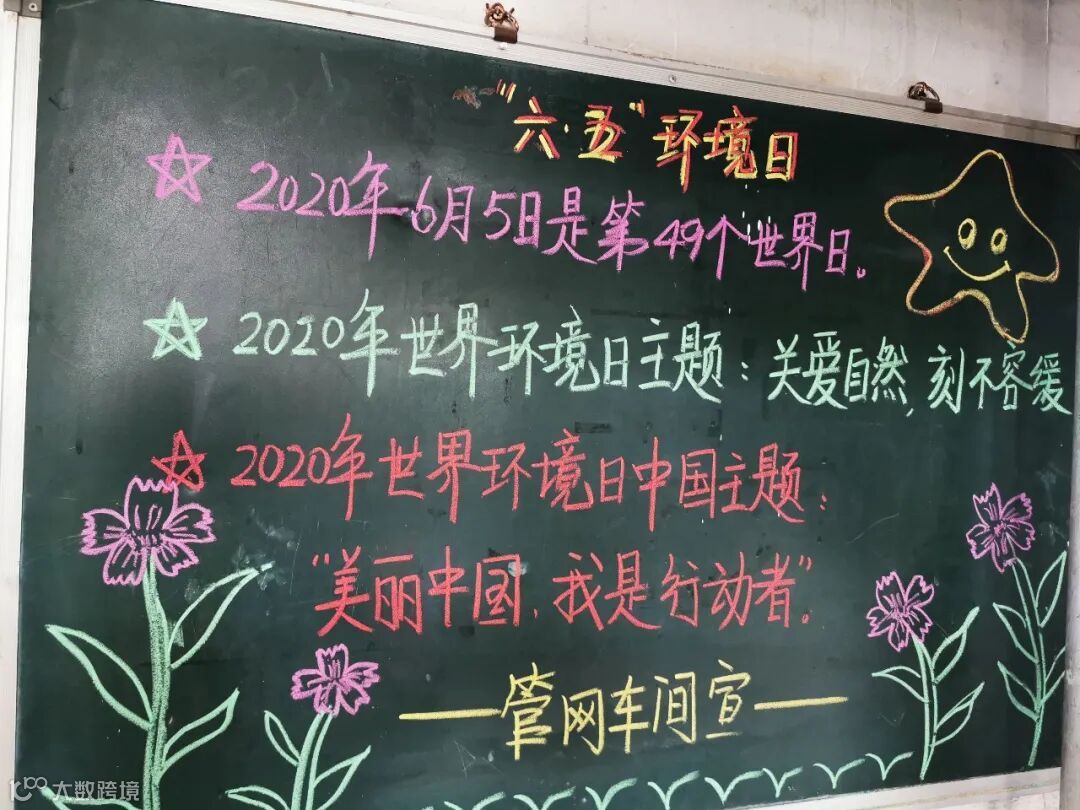 "六·五"环境日
2020年6月5日是第49个世界日。
2020年世界环境日主题：关爱自然,刻不容缓
2020年世界环境日中国主题：
"美丽中国,我是行动者"。
——管网车间宣——
大数跨境